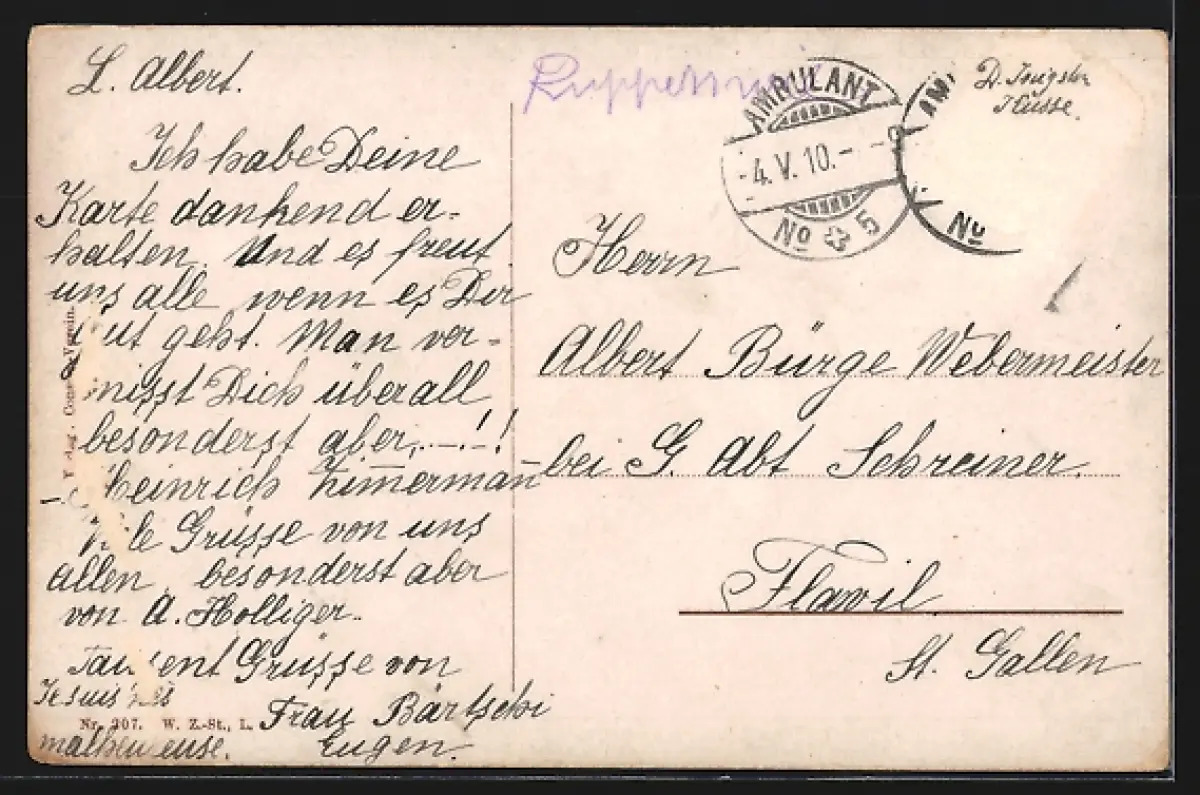 L. Albert.
Ich habe Deine
Karte dankend er-
halten. Und es freut
uns alle wenn es Dir
gut geht. Man ver-
misst Dich überall
besonderst aber,.—.!.!
Heinrich Zimmermann
Viele Grüsse von uns
allen, besonderst aber
von A. Holliger.
Tausent Grüsse von
Frau Bärtschi
Eugen.
Je suis
malheureuse.
Nr. 307. W. Z.-St., L.
AMBULANT
-4.V.10.-
No 5
AM
No
Herrn
Albert Bürge Webermeister
bei G. Abt Schreiner.
Flawil
St. Gallen